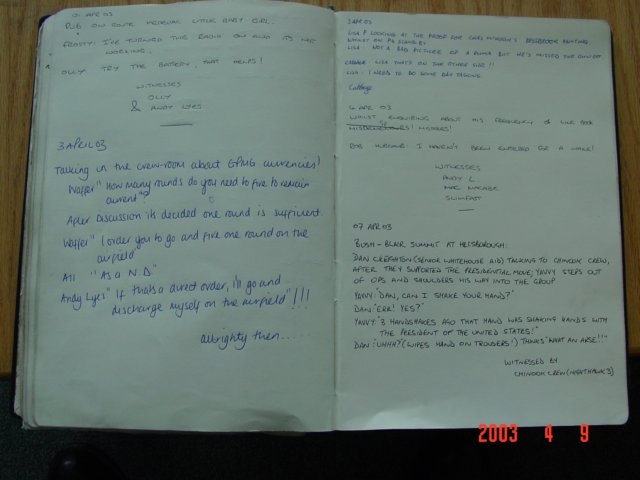 01 APR 03
PUB ON ROUTE LITTLE BABY GIRL.
FROSTY: I'VE TURNED THIS RADIO ON AND ITS NOT
WORKING.
OLLY TRY THE BATTERY, THAT HELPS!
WITNESSES
OLLY
& ANDY LYES
3 APRIL 03
Talking in the crew-room about GPMG currencies!
Waffer "How many rounds do you need to fire to remain
current"?
After Discussion its decided one round is sufficient.
Waffer "I order you to go and fire one round on the
airfield"
All "As a N.D"
Andy Lyes "If thats a direct order, i'll go and
discharge myself on the airfield"!!!
alrighty then.....
3 APR 03
LISA P LOOKING AT THE PROOF FOR CHRIS BESSBROOK PAINTING
WHILST ON PA STANDBY
LISA: NOT A BAD PICTURE OF A PUMA BUT HE'S MISSED THE
LISA THAT'S ON THE OTHER SIDE!!
LISA: I NEED TO DO SOME DAY TASKING
Cabbage
4 APR 03
WHILST ENQUIRING ABOUT HIS FREQUENCY OF LINE BOOK
MISDEMEANOURS!
ROB I HAVEN'T BEEN ENTERED FOR A WHILE!
WITNESSES
ANDY L
MAC
SLIMFAST
07 APR 03
BUSH-BLAIR SUMMIT AT HILLSBOROUGH:
DAN CREIGHTON (SENIOR WHITEHOUSE AID) TALKING TO CHINOOK CREW,
AFTER THEY SUPPORTED THE PRESIDENTIAL MOVE; YAVVY STEPS OUT
OF OPS AND SHOULDERS HIS WAY INTO THE GROUP
YAVVY: 'DAN, CAN I SHAKE YOUR HAND?'
DAN: 'ERR! YES?'
YAVVY: '3 HANDSHAKES AGO THAT HAND WAS SHAKING HANDS WITH
THE PRESIDENT OF THE UNITED STATES!'
DAN: 'UHHH?' (WIPES HAND ON TROUSERS!) THINKS 'WHAT AN ARSE!!'
WITNESSED BY
CHINOOK CREW (NIGHTHAWK 3)
2003 4 9